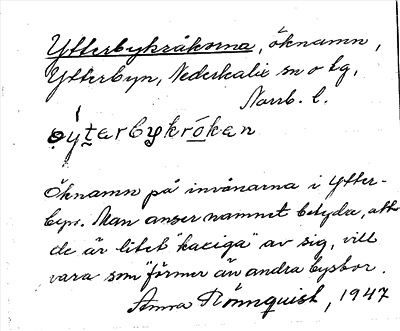 Ytterbykråkorna, öknamn,
Ytterbyn, Nederkalix sn o tg,
Norrb. l.
òytarbykrókan
Öknamn på invånarna i Ytter-
byn. Man anser namnet betyda, att
de är litet "kaciga" av sig, vill
vara som "förmer än andra bysbor.
Anna Rönnquist, 1947